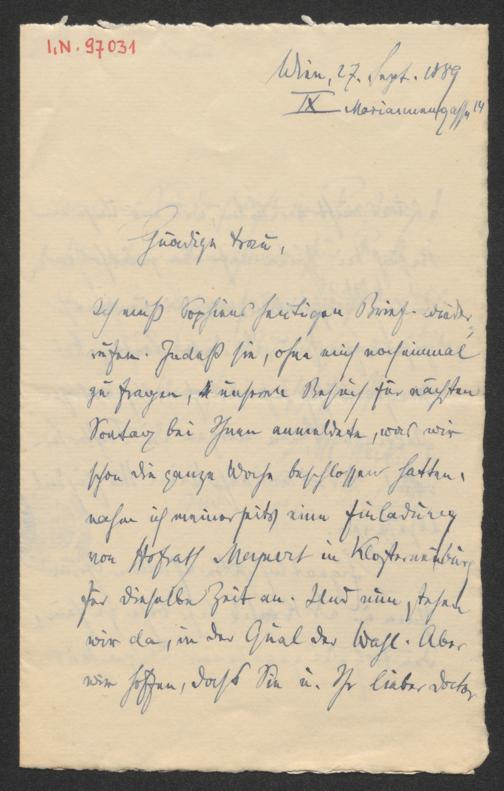 I.N. 97031
Wien, 27. Sept. 1889
IX Mariannengasse 14
Gnädige Frau,
Ich muß Sophiens heutigen Brief wider-
rufen. Indeß sie, ohne mich noch einmal
zu fragen, unseren Besuch für nächsten
Sontag bei Ihnen anmeldete, was wir
schon die ganze Woche beschlossen hatten,
nahm ich meinerseits eine Einladung
von Hofrath Meynert in Klosterneuburg
für dieselbe Zeit an. Und nun stehen
wir da, in der Qual der Wahl. Aber
wir hoffen, daß Sie u. Ihr lieber Doctor